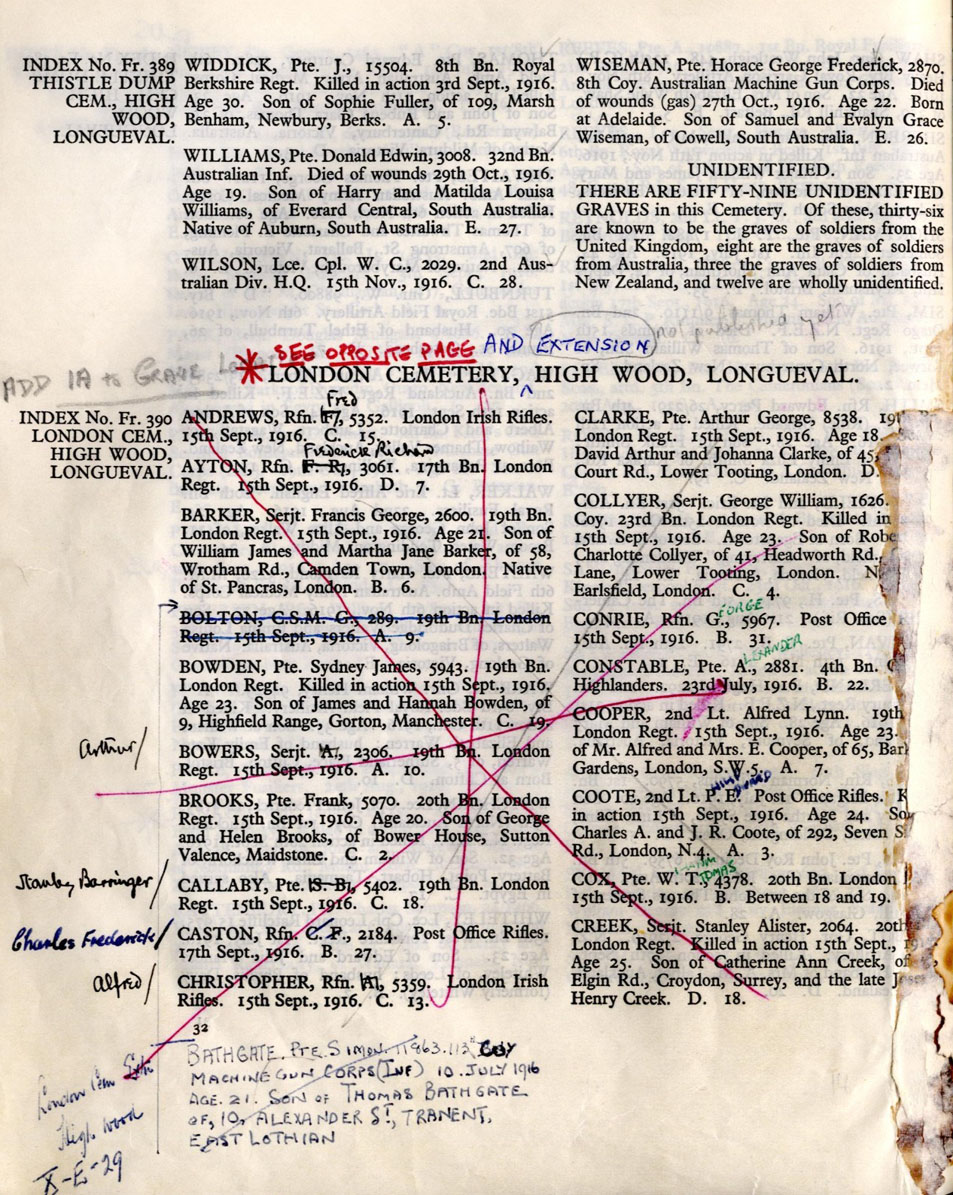 INDEX No. Fr. 389
THISTLE DUMP
CEM., HIGH
WOOD,
LONGUEVAL.
WIDDICK, Pte. J., 15504. 8th Bn. Royal
Berkshire Regt. Killed in action 3rd Sept., 1916.
Age 30. Son of Sophie Fuller, of 109, Marsh
Benham, Newbury, Berks. A. 5.
WILLIAMS, Pte. Donald Edwin, 3008. 32nd Bn.
Australian Inf. Died of wounds 29th Oct., 1916.
Age 19. Son of Harry and Matilda Louisa
Williams, of Everard Central, South Australia.
Native of Auburn, South Australia. E. 27.
WILSON, Lce. Cpl. W. C., 2029. 2nd Aus-
tralian Div. H.Q. 15th Nov., 1916. C. 28.
WISEMAN, Pte. Horace George Frederick, 2870.
8th Coy. Australian Machine Gun Corps. Died
of wounds (gas) 27th Oct., 1916. Age 22. Born
at Adelaide. Son of Samuel and Evalyn Grace
Wiseman, of Cowell, South Australia. E. 26.
UNIDENTIFIED.
THERE ARE FIFTY-NINE UNIDENTIFIED
GRAVES in this Cemetery. Of these, thirty-six
are known to be the graves of soldiers from the
United Kingdom, eight are the graves of soldiers
from Australia, three the graves of soldiers from
New Zealand, and twelve are wholly unidentified.
not published yet
SEE OPPOSITE PAGE AND EXTENSION
ADD 1A to Grave
*LONDON CEMETERY, HIGH WOOD, LONGUEVAL.
INDEX No. Fr. 390
LONDON CEM.,
HIGH WOOD,
LONGUEVAL.
Fred
ANDREWS, Rfn. F., 5352. London Irish Rifles.
15th Sept., 1916. C. 15.
Frederick Richard
AYTON, Rfn. F. R., 3061. 17th Bn. London
Regt. 15th Sept., 1916. D. 7.
BARKER, Serjt. Francis George, 2600. 19th Bn.
London Regt. 15th Sept., 1916. Age 21. Son of
William James and Martha Jane Barker, of 58,
Wrotham Rd., Camden Town, London. Native
of St. Pancras, London. B. 6.
BOLTON, C.S.M. G., 289. 19th Bn. London
Regt. 15th Sept., 1916. A. 9.
BOWDEN, Pte. Sydney James, 5943. 19th Bn.
London Regt. Killed in action 15th Sept., 1916.
Age 23. Son of James and Hannah Bowden, of
9, Highfield Range, Gorton, Manchester. C. 19.
Arthur/
BOWERS, Serjt. A., 2306. 19th Bn. London
Regt. 15th Sept., 1916. A. 10.
BROOKS, Pte. Frank, 5070. 20th Bn. London
Regt. 15th Sept., 1916. Age 20. Son of George
and Helen Brooks, of Bower House, Sutton
Valence, Maidstone. C. 2.
Stanley Barringer/
CALLABY, Pte. S. B., 5402. 19th Bn. London
Regt. 15th Sept., 1916. C. 18.
Charles Frederick/
CASTON, Rfn. C. F., 2184. Post Office Rifles.
17th Sept., 1916. B. 27.
Alfred/
CHRISTOPHER, Rfn. A., 5359. London Irish
Rifles. 15th Sept., 1916. C. 13.
CLARKE, Pte. Arthur George, 8538. 19
London Regt. 15th Sept., 1916. Age 18.
David Arthur and Johanna Clarke, of 45,
Court Rd., Lower Tooting, London. D.
COLLYER, Serjt. George William, 1626.
Coy. 23rd Bn. London Regt. Killed in
15th Sept., 1916. Age 23. Son of Robe
Charlotte Collyer, of 41, Headworth Rd.,
Lane, Lower Tooting, London. N
Earlsfield, London. C. 4.
EORGE
CONRIE, Rfn. G., 5967. Post Office
15th Sept., 1916. B. 31.
LEXANDER
CONSTABLE, Pte. A., 2881. 4th Bn.
Highlanders. 23rd July, 1916. B. 22.
COOPER, 2nd Lt. Alfred Lynn. 19th
London Regt. 15th Sept., 1916. Age 23.
of Mr. Alfred and Mrs. E. Cooper, of 65, Bar
Gardens, London, S.W.5. A. 7.
COOTE, 2nd Lt. P. E. Post Office Rifles. K
in action 15th Sept., 1916. Age 24. So
Charles A. and J. R. Coote, of 292, Seven S
Rd., London, N.4. A. 3.
COX, Pte. W. T., 4378. 20th Bn. London
15th Sept., 1916. B. Between 18 and 19.
CREEK, Serjt. Stanley Alister, 2064. 20th
London Regt. Killed in action 15th Sept., 19
Age 25. Son of Catherine Ann Creek, of
Elgin Rd., Croydon, Surrey, and the late J
Henry Creek. D. 18.
32
BATHGATE. Pte SIMON. 11963. 113th COY
MACHINE GUN CORPS (INF) 10. JULY 1916
AGE. 21. SON OF THOMAS BATHGATE
OF, 10, ALEXANDER ST, TRANENT,
EAST LOTHIAN
London Cem Extn
High Wood
X-E-29